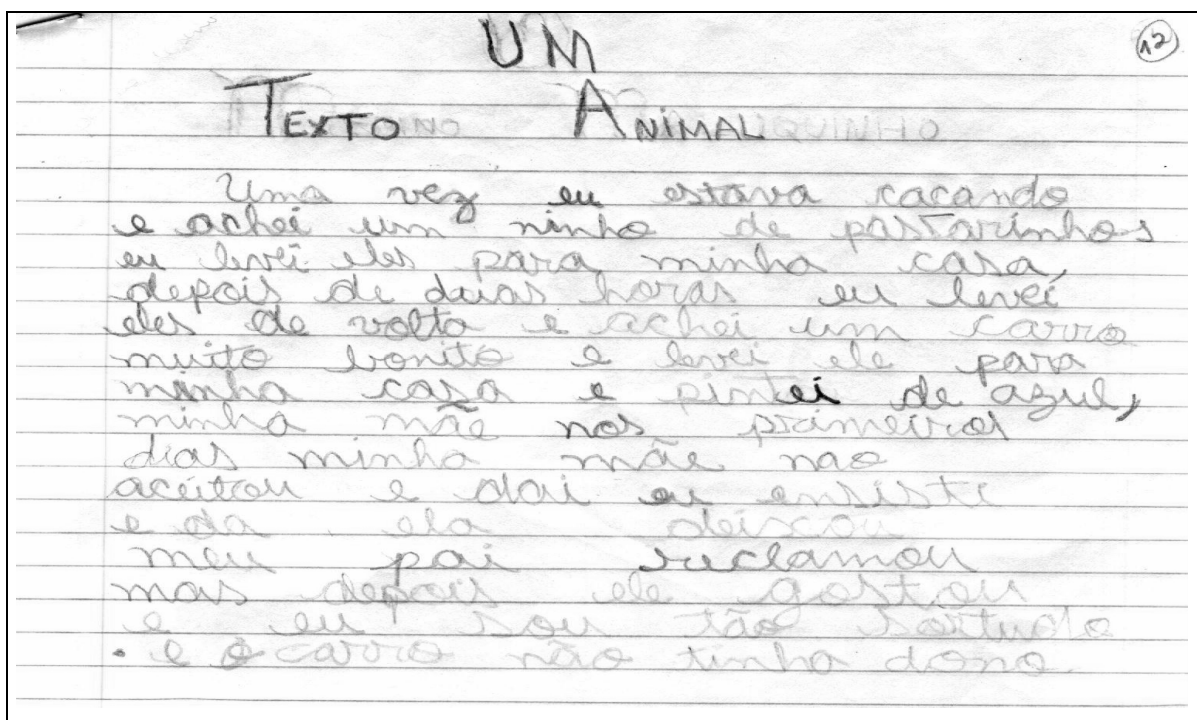 UM
12
TEXTO ANIMAL
Uma vez eu estava caçando
e achei um ninho de pastarinhos
eu levei eles para minha casa,
depois de duas horas eu levei
eles de volta e achei um carro
muito bonito e levei ele para
minha casa e pintei de azul,
minha mãe nos primeiros
dias minha mãe nao
aceitou e dai eu ensisti
e da ela deixou
meu pai reclamou
mas depois ele gostou
e eu sou tão sortudo
. e o carro não tinha dono